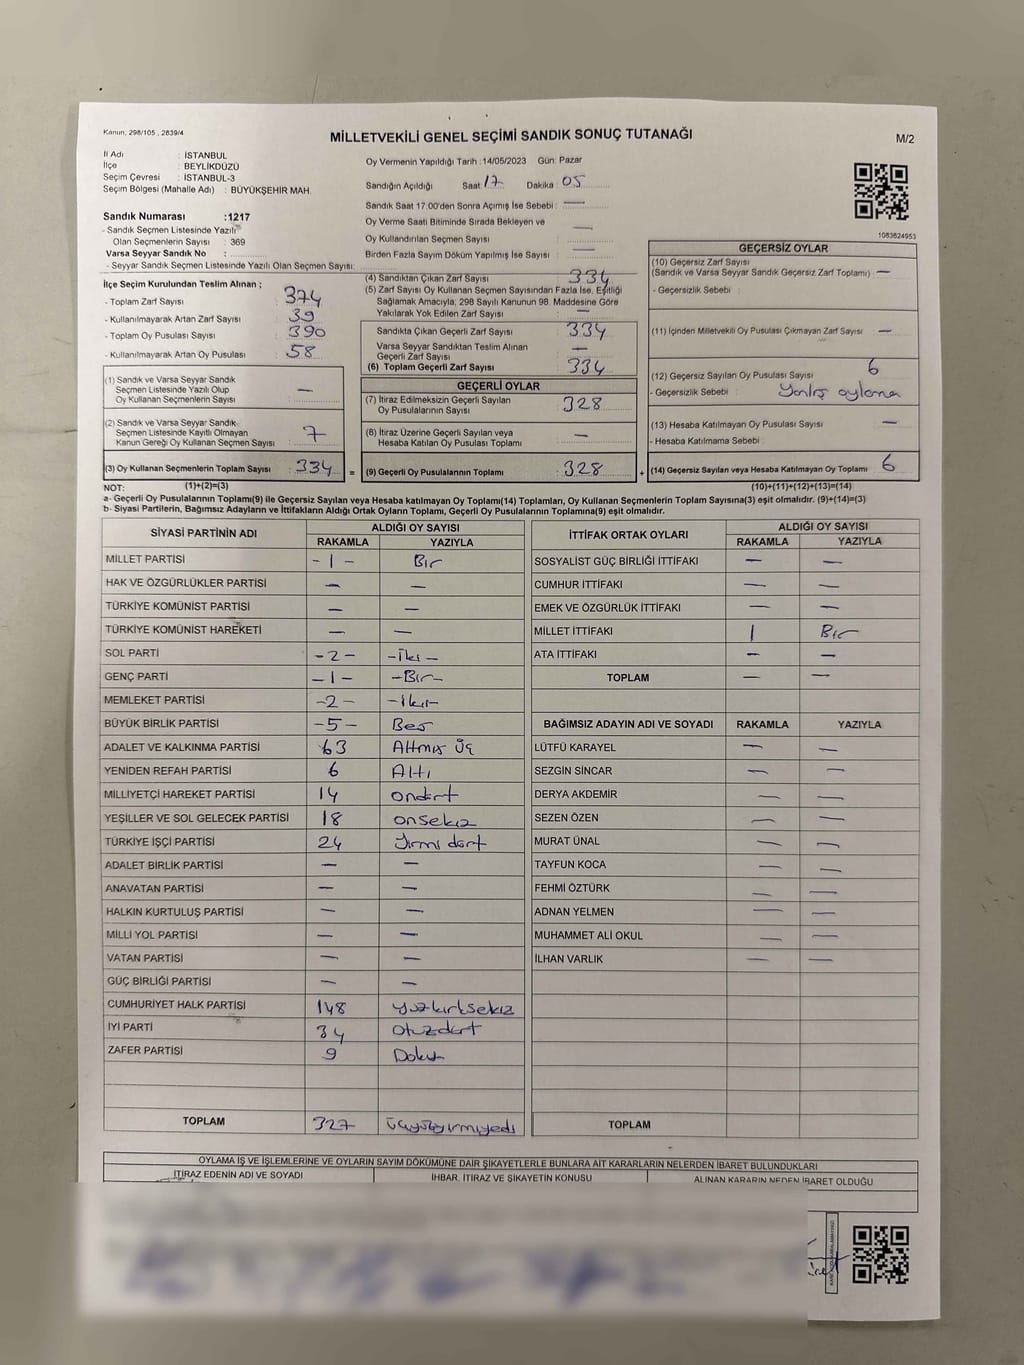 Kanun, 298/105 , 2839/4
MİLLETVEKİLİ GENEL SEÇİMİ SANDIK SONUÇ TUTANAĞI
M/2
İl Adı : İSTANBUL
İlçe : BEYLİKDÜZÜ
Seçim Çevresi : İSTANBUL-3
Seçim Bölgesi (Mahalle Adı) : BÜYÜKŞEHİR MAH.
Sandık Numarası :1217
- Sandık Seçmen Listesinde Yazılı
Olan Seçmenlerin Sayısı : 369
Varsa Seyyar Sandık No :
- Seyyar Sandık Seçmen Listesinde Yazılı Olan Seçmen Sayısı:
Oy Vermenin Yapıldığı Tarih :14/05/2023 Gün: Pazar
Sandığın Açıldığı Saat: 17 Dakika : 05
Sandık Saat 17:00'den Sonra Açımış İse Sebebi : —
Oy Verme Saati Bitiminde Sırada Bekleyen ve
Oy Kullandırılan Seçmen Sayısı —
Birden Fazla Sayım Döküm Yapılmış İse Sayısı —
1083624953
İlçe Seçim Kurulundan Teslim Alınan ;
- Toplam Zarf Sayısı : 374
- Kullanılmayarak Artan Zarf Sayısı : 39
- Toplam Oy Pusulası Sayısı : 390
- Kullanılmayarak Artan Oy Pusulası : 58
(1) Sandık ve Varsa Seyyar Sandık
Seçmen Listesinde Yazılı Olup
Oy Kullanan Seçmenlerin Sayısı : —
(2) Sandık ve Varsa Seyyar Sandık
Seçmen Listesinde Kayıtlı Olmayan
Kanun Gereği Oy Kullanan Seçmen Sayısı : 7
(3) Oy Kullanan Seçmenlerin Toplam Sayısı : 334 =
(4) Sandıktan Çıkan Zarf Sayısı : 334
(5) Zarf Sayısı Oy Kullanan Seçmen Sayısından Fazla İse, Eşitliği
Sağlamak Amacıyla, 298 Sayılı Kanunun 98. Maddesine Göre
Yakılarak Yok Edilen Zarf Sayısı : —
Sandıkta Çıkan Geçerli Zarf Sayısı : 334
Varsa Seyyar Sandıktan Teslim Alınan
Geçerli Zarf Sayısı : —
(6) Toplam Geçerli Zarf Sayısı : 334
GEÇERLİ OYLAR
(7) İtiraz Edilmeksizin Geçerli Sayılan
Oy Pusulalarının Sayısı : 328
(8) İtiraz Üzerine Geçerli Sayılan veya
Hesaba Katılan Oy Pusulası Toplamı : —
(9) Geçerli Oy Pusulalarının Toplamı : 328 +
GEÇERSİZ OYLAR
(10) Geçersiz Zarf Sayısı
(Sandık ve Varsa Seyyar Sandık Geçersiz Zarf Toplamı) : —
- Geçersizlik Sebebi :
(11) İçinden Milletvekili Oy Pusulası Çıkmayan Zarf Sayısı : —
(12) Geçersiz Sayılan Oy Pusulası Sayısı : 6
- Geçersizlik Sebebi : Yanlış oylama
(13) Hesaba Katılmayan Oy Pusulası Sayısı : —
- Hesaba Katılmama Sebebi :
(14) Geçersiz Sayılan veya Hesaba Katılmayan Oy Toplamı : 6
NOT: (1)+(2)=(3) (10)+(11)+(12)+(13)=(14)
a- Geçerli Oy Pusulalarının Toplamı(9) ile Geçersiz Sayılan veya Hesaba katılmayan Oy Toplamı(14) Toplamları, Oy Kullanan Seçmenlerin Toplam Sayısına(3) eşit olmalıdır. (9)+(14)=(3)
b- Siyasi Partilerin, Bağımsız Adayların ve İttifakların Aldığı Ortak Oyların Toplamı, Geçerli Oy Pusulalarının Toplamına(9) eşit olmalıdır.
SİYASİ PARTİNİN ADI ALDIĞI OY SAYISI
RAKAMLA YAZIYLA
MİLLET PARTİSİ - 1 - Bir
HAK VE ÖZGÜRLÜKLER PARTİSİ — —
TÜRKİYE KOMÜNİST PARTİSİ — —
TÜRKİYE KOMÜNİST HAREKETİ — —
SOL PARTİ - 2 - - İki -
GENÇ PARTİ - 1 - - Bir -
MEMLEKET PARTİSİ - 2 - - iki -
BÜYÜK BİRLİK PARTİSİ - 5 - Beş
ADALET VE KALKINMA PARTİSİ 63 Altmış Üç
YENİDEN REFAH PARTİSİ 6 Altı
MİLLİYETÇİ HAREKET PARTİSİ 14 ondört
YEŞİLLER VE SOL GELECEK PARTİSİ 18 onsekiz
TÜRKİYE İŞÇİ PARTİSİ 24 Yirmi dört
ADALET BİRLİK PARTİSİ — —
ANAVATAN PARTİSİ — —
HALKIN KURTULUŞ PARTİSİ — —
MİLLİ YOL PARTİSİ — —
VATAN PARTİSİ — —
GÜÇ BİRLİĞİ PARTİSİ — —
CUMHURİYET HALK PARTİSİ 148 yüzkırksekiz
İYİ PARTİ 34 Otuzdört
ZAFER PARTİSİ 9 Dokuz
TOPLAM 327 üçyüzyirmiyedi
İTTİFAK ORTAK OYLARI ALDIĞI OY SAYISI
RAKAMLA YAZIYLA
SOSYALİST GÜÇ BİRLİĞİ İTTİFAKI — —
CUMHUR İTTİFAKI — —
EMEK VE ÖZGÜRLÜK İTTİFAKI — —
MİLLET İTTİFAKI 1 Bir
ATA İTTİFAKI — —
TOPLAM — —
BAĞIMSIZ ADAYIN ADI VE SOYADI RAKAMLA YAZIYLA
LÜTFÜ KARAYEL — —
SEZGİN SİNCAR — —
DERYA AKDEMİR — —
SEZEN ÖZEN — —
MURAT ÜNAL — —
TAYFUN KOCA — —
FEHMİ ÖZTÜRK — —
ADNAN YELMEN — —
MUHAMMET ALİ OKUL — —
İLHAN VARLIK — —
TOPLAM
OYLAMA İŞ VE İŞLEMLERİNE VE OYLARIN SAYIM DÖKÜMÜNE DAİR ŞİKAYETLERLE BUNLARA AİT KARARLARIN NELERDEN İBARET BULUNDUKLARI
İTİRAZ EDENİN ADI VE SOYADI İHBAR, İTİRAZ VE ŞİKAYETİN KONUSU ALINAN KARARIN NEDEN İBARET OLDUĞU